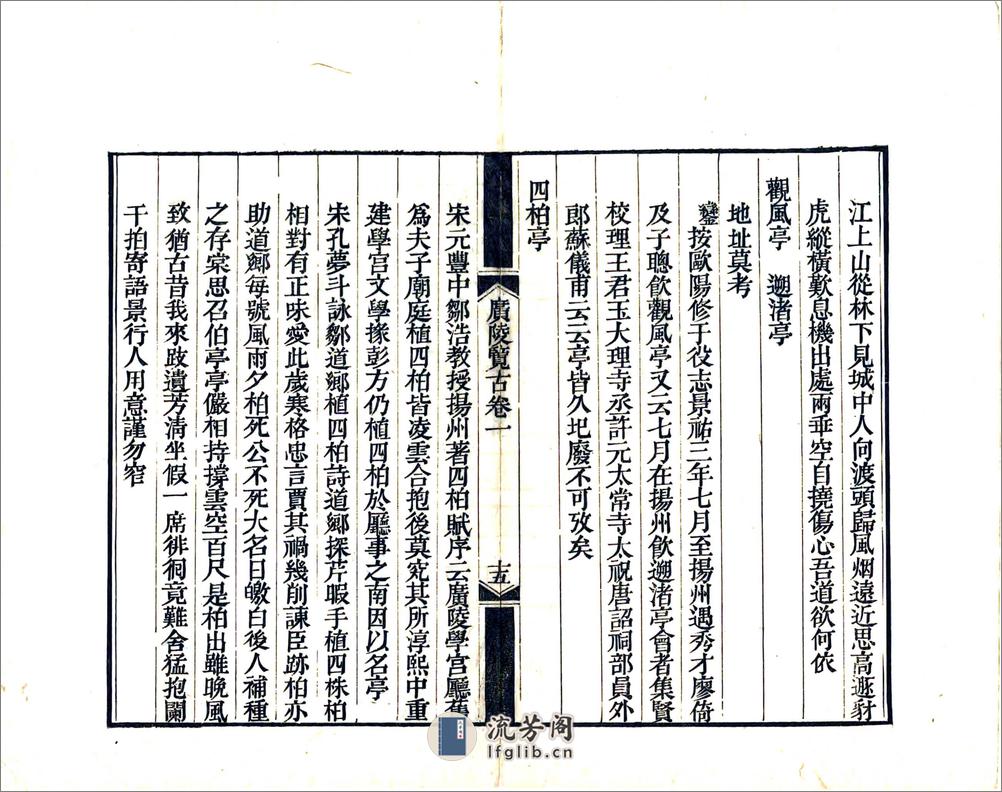 江上山從林下見城中人向渡頭歸風烟遠近思高遯豺
虎縱橫歎息機出處兩乖空自撓傷心吾道欲何依
觀風亭　遡渚亭
地址莫考
鑾按歐陽修于役志景祐三年七月至揚州遇秀才廖倚
及子聰飲觀風亭又云七月在揚州飲遡渚亭會者集賢
校理王君玉大理寺丞許元太常寺太祝唐詔祠部員外
郎蘇儀甫云云亭皆久圮廢不可攷矣
四柏亭
廣陵覽古卷一
十五
宋元豐中鄒浩教授揚州著四柏賦序云廣陵學宮廳舊
爲夫子廟庭植四柏皆凌雲合抱後莫究其所淳熙中重
建學宮文學掾彭方仍植四柏於廳事之南因以名亭
宋孔夢斗詠鄒道鄉植四柏詩道鄉探芹暇手植四株柏
相對有正味愛此歲寒格忠言賈其禍幾削諫臣跡柏亦
助道鄉每號風雨夕柏死公不死大名日皦白後人補種
之存棠思召伯亭亭儼相持撐雲空百尺是柏出雖晚風
致猶古昔我來跂遺芳清坐假一席徘徊竟難舍猛抱闌
干拍寄語景行人用意謹勿窄
流芳阁
lfglib.cn